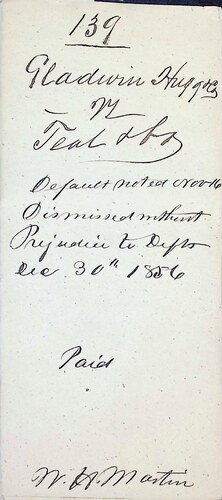 139
Gladwin Hugg & Co
vs
Teal & Co
Default noted Nov 16
Dismissed without
Prejudice to Defts
Dec 30th 1856
Paid
W. H. Martin